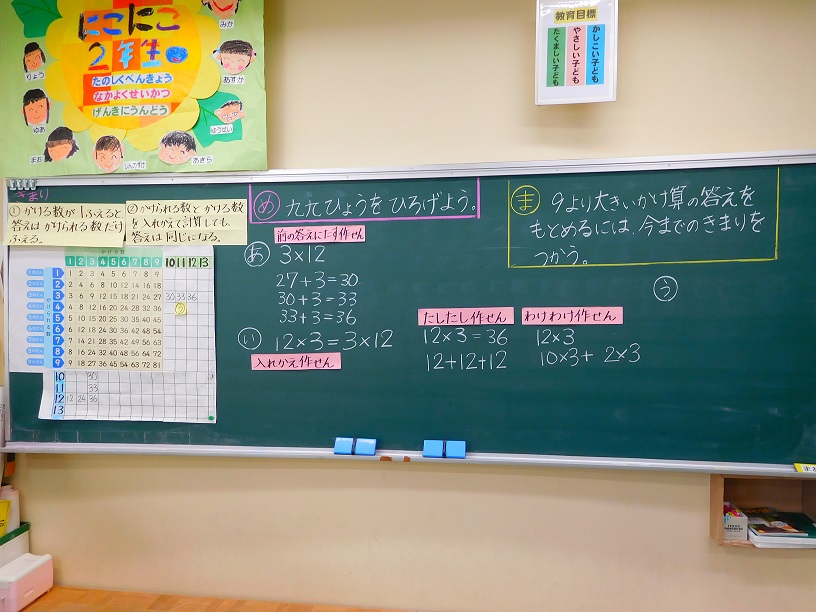 にこにこ
2年生
たのしくべんきょう
なかよくせいかつ
げんきにうんどう
みか
りょう
あすか
ゆあ
ゆうせい
まお
しんのすけ
あきら
教育目標
かしこい子ども
やさしい子ども
たくましい子ども
きまり
①かける数が1ふえると
答えはかけられる数だけ
ふえる。
②かけられる数とかける数
を入れかえて計算しても、
答えは同じになる。
め 九九ひょうをひろげよう。
ま 9より大きいかけ算の答えを
もとめるには、今までのきまりを
つかう。
前の答えにたす作せん
あ 3×12
27+3=30
30+3=33
33+3=36
い 12×3=3×12
入れかえ作せん
たしたし作せん
12×3=36
12+12+12
わけわけ作せん
12×3
10×3+ 2×3
う
かける数
かけられる数
1 2 3 4 5 6 7 8 9 10 11 12 13
1 1 2 3 4 5 6 7 8 9
2 2 4 6 8 10 12 14 16 18
3 3 6 9 12 15 18 21 24 27 30 33 36
4 4 8 12 16 20 24 28 32 36 う
5 5 10 15 20 25 30 35 40 45
6 6 12 18 24 30 36 42 48 54
7 7 14 21 28 35 42 49 56 63
8 8 16 24 32 40 48 56 64 72
9 9 18 27 36 45 54 63 72 81
10 30
11 33
12 12 24 36
13